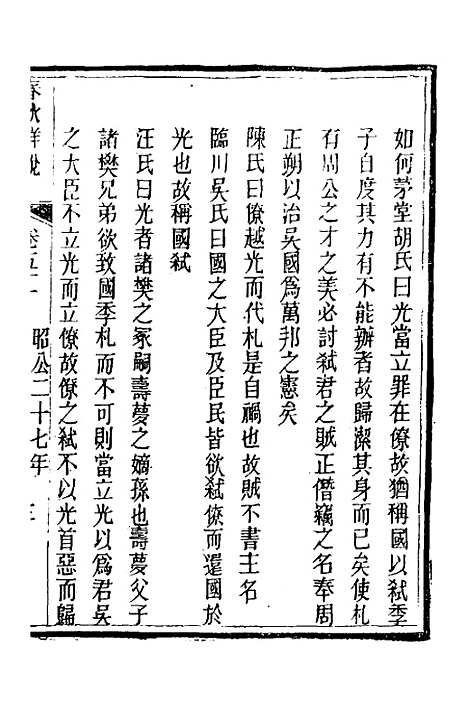 如何茅堂胡氏曰光當立罪在僚故猶稱國以弒季
子自度其力有不能辦者故歸潔其身而已矣使札
有周公之才之美必討弒君之賊正僭竊之名奉周
正朔以治吳國爲萬邦之憲矣
陳氏曰僚越光而代札是自禍也故賊不書主名
臨川吳氏曰國之大臣及臣民皆欲弒僚而還國於
光也故稱國弒
汪氏曰光者諸樊之冢嗣壽夢之嫡孫也壽夢父子
諸樊兄弟欲致國季札而不可則當立光以爲君吳
之大臣不立光而立僚故僚之弒不以光首惡而歸
春秋詳說 卷五十 昭公二十七年 三